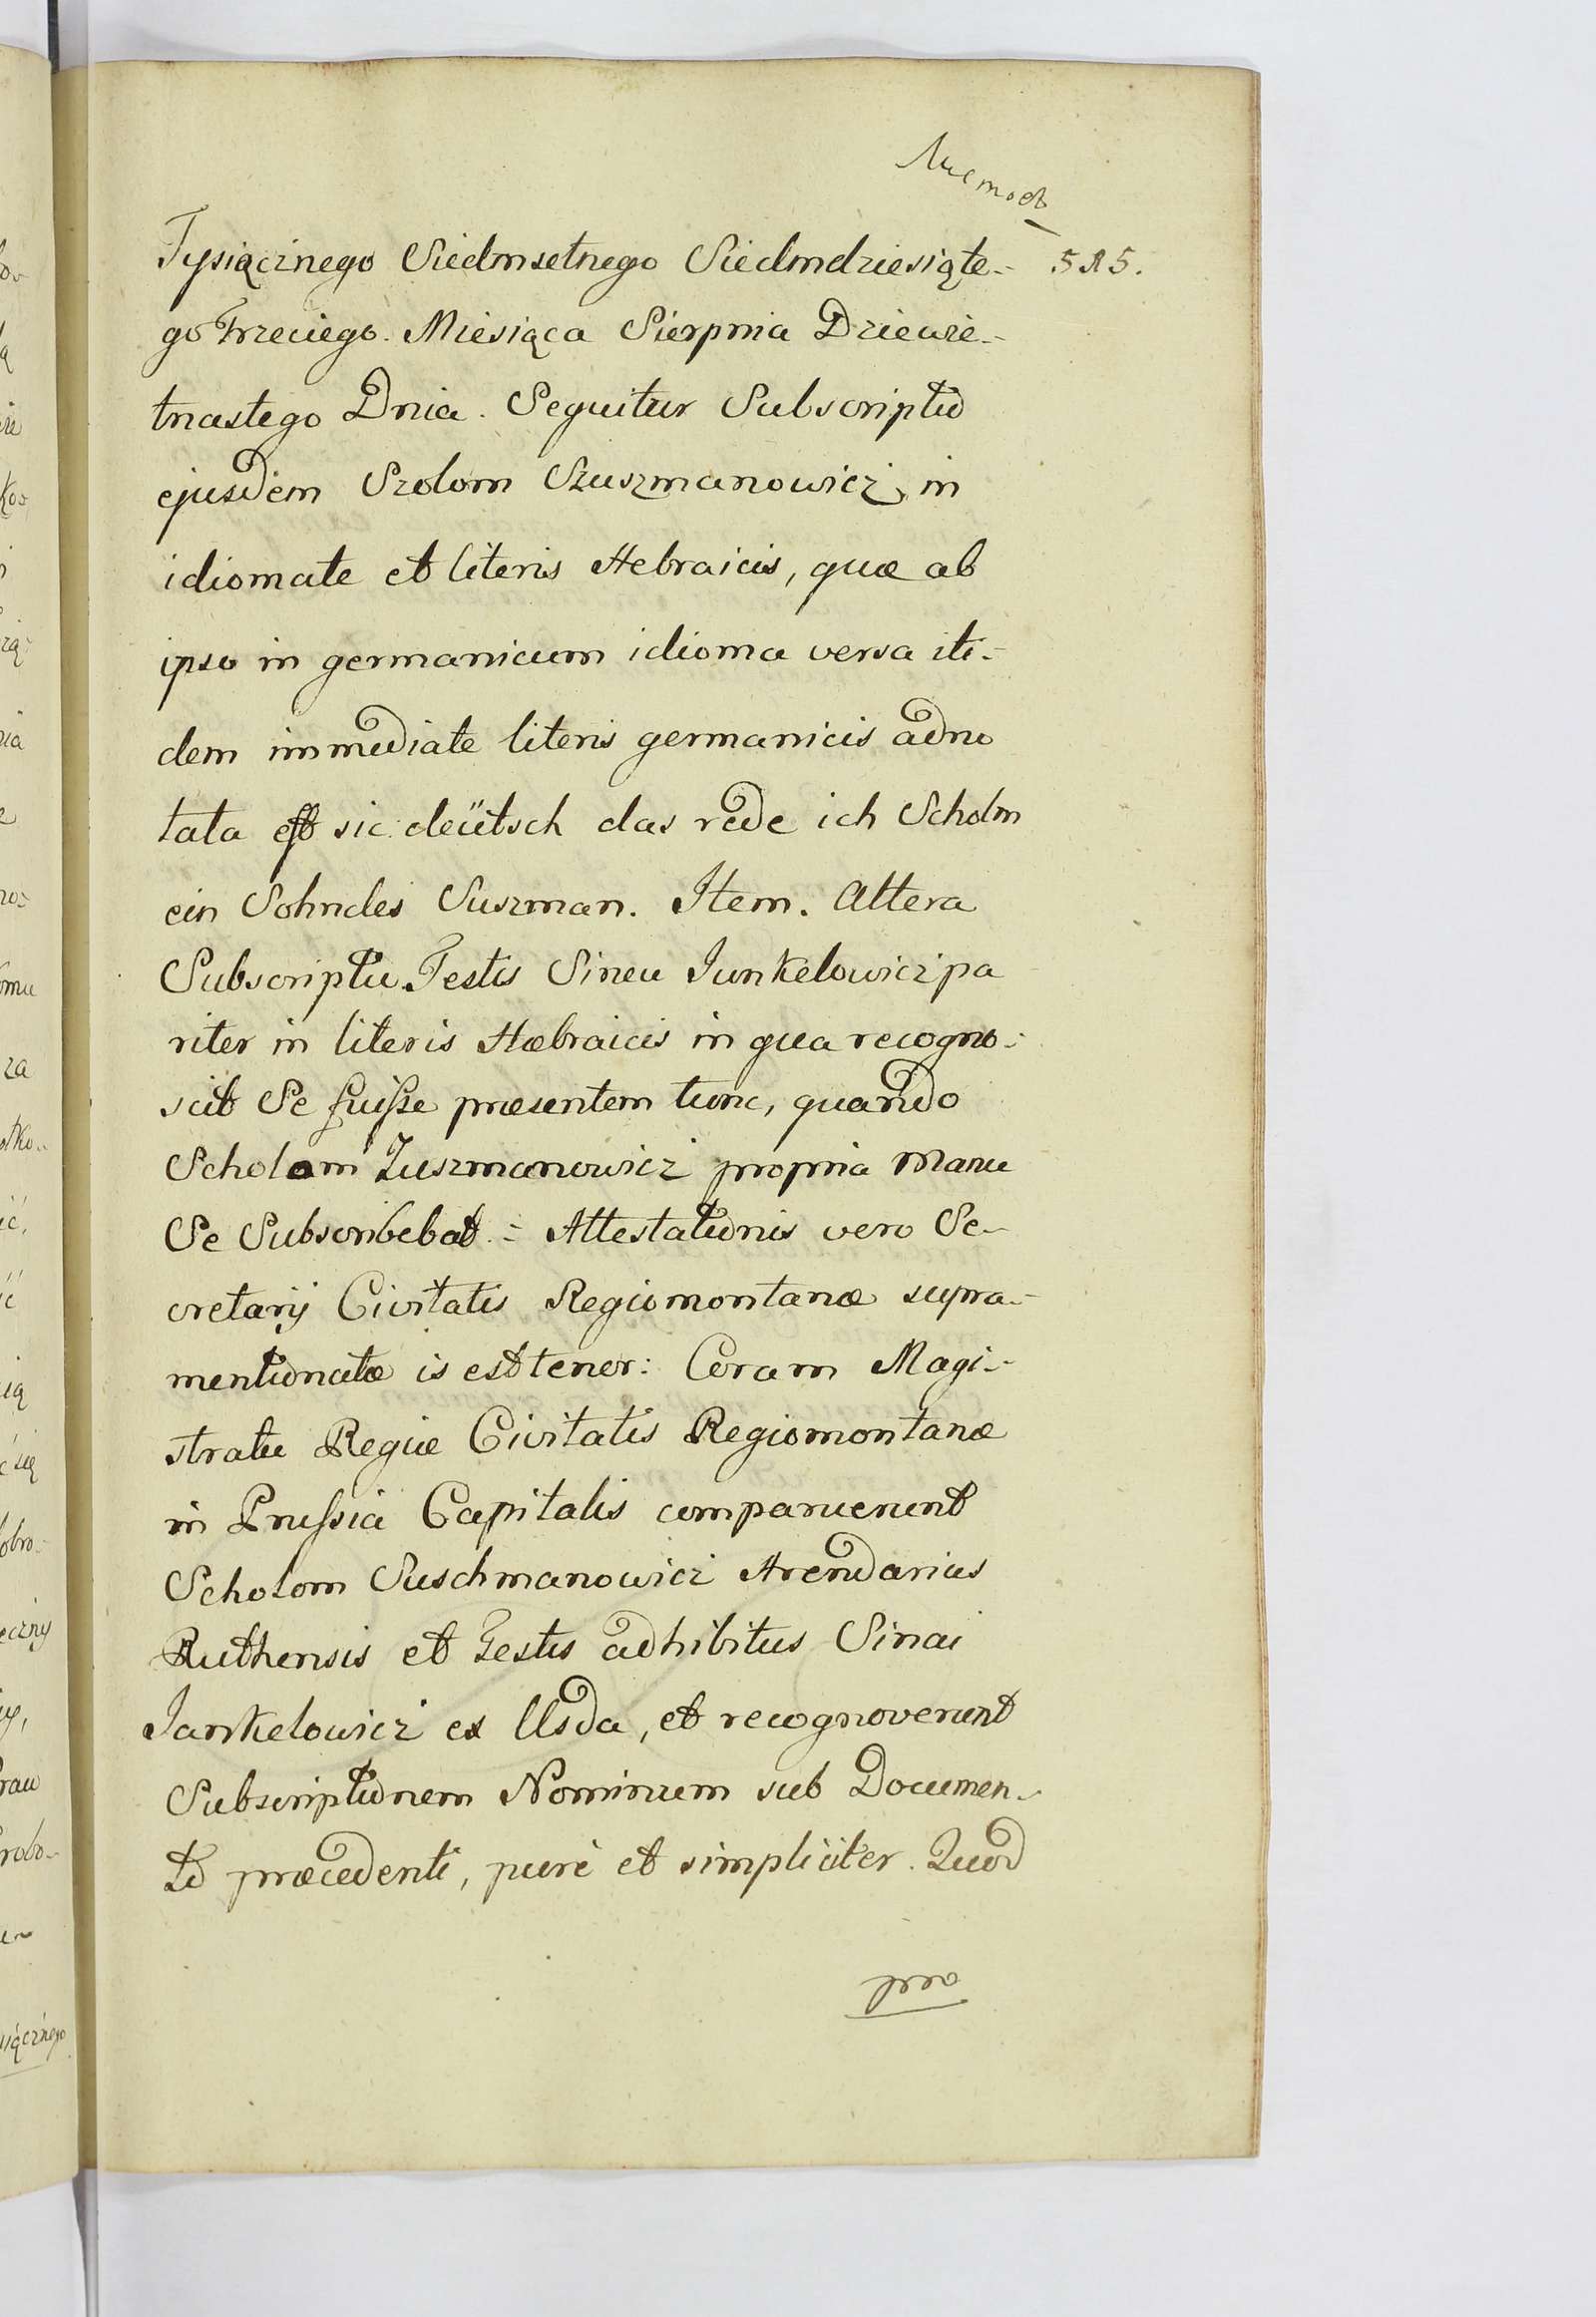 Листовъ
Tysiącznego Siedmsetnego Siedmdziesiąte- 525.
go Trzeciego. Miesiąca Sierpnia Dziewie-
tnastego Dnia. Sequitur Subscriptio
ejusdem Szolom Szuszmanowicz, in
idiomate et literis Hebraicis, quæ ab
ipso in germanicum idioma versa iti-
dem immediate literis germanicis adno
tata est sic deütsch das rede ich Scholm
ein Sohndes Suszman. Item. Altera
Subscriptio Testis Sineu Junkelowicz pa
riter in literis Hæbraicis in qua recogno-
scit Se fuisse præsentem tunc, quando
Scholom Zuszmanowicz propria Manu
Se Subscribebat = Attestationis vero Se-
cretarij Civitatis Regiomontanæ supra-
mentionatæ is est tenor: Coram Magi-
stratu Regiæ Civitatis Regiomontanæ
in Prussia Capitalis comparuerunt
Scholom Suschmanowicz Arendarius
Ruthensis et Testis adhibitus Sinai
Jankelowicz ex Usda, et recognoverunt
Subscriptionem Nominum sub Documen-
to præcedenti, puré et simpliciter. Quod
pro